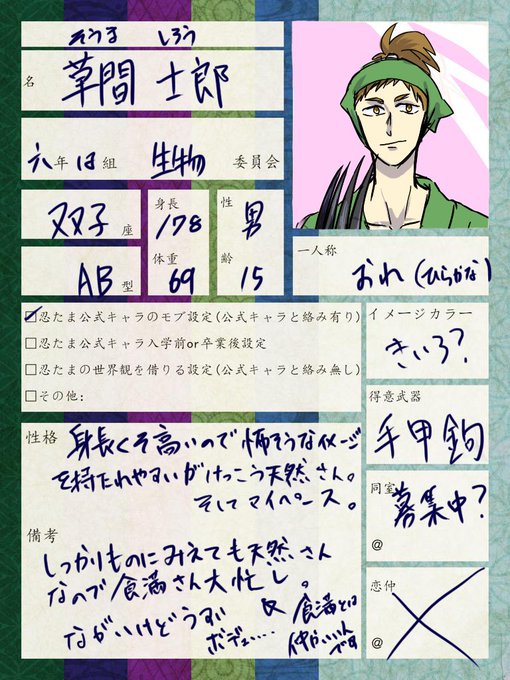 そうま しろう
名 草間 士郎
六年は組 生物 委員会
双子座
身長 178
性 男
AB型
体重 69
齢 15
一人称 おれ(ひらがな)
☑忍たま公式キャラのモブ設定(公式キャラと絡み有り)
□忍たま公式キャラ入学前or卒業後設定
□忍たまの世界観を借りる設定(公式キャラと絡み無し)
□その他:
イメージカラー
きいろ?
得意武器
手甲鉤
同室 募集中?
@
恋仲
@
性格 身長くそ高いので怖そうなイメージ
を持たれやすいがけっこう天然さん。
そしてマイペース。
備考
しっかりものにみえても天然さん
なので食満さん大忙し。
ながいけどうすい
ボデュ....
食満とは
仲がいいん
です